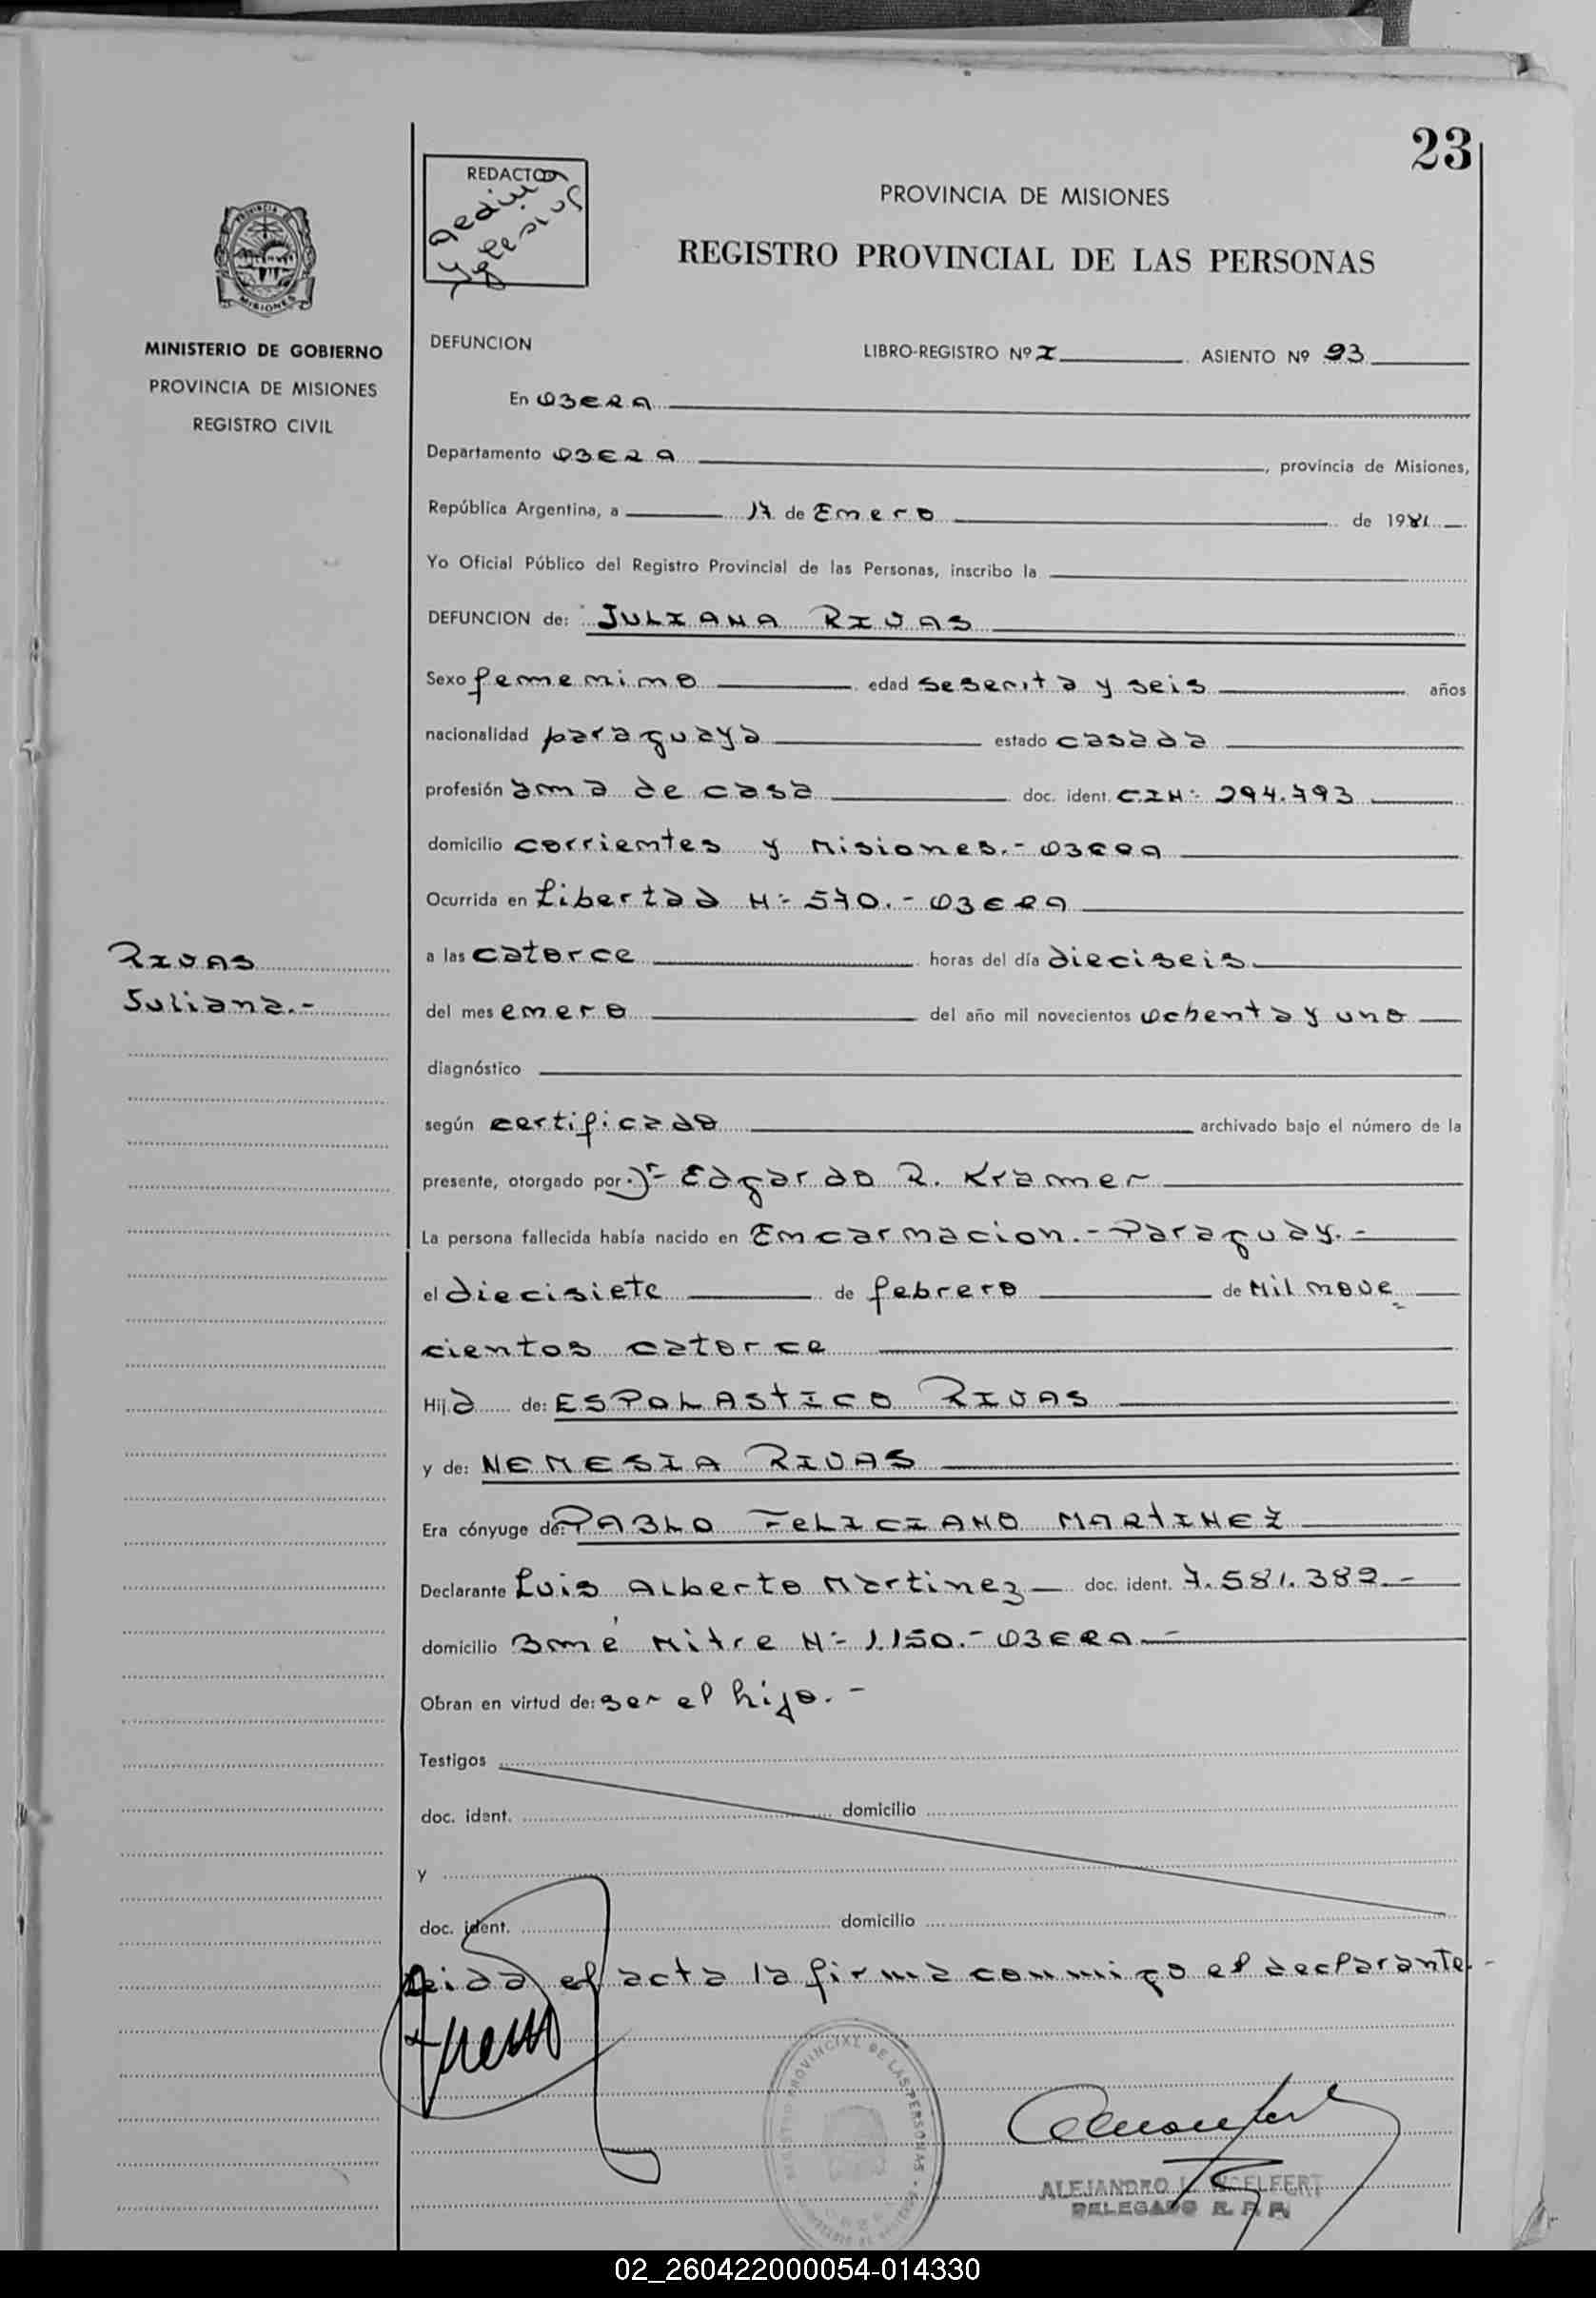 23
REDACTOR
PROVINCIA DE MISIONES
REGISTRO PROVINCIAL DE LAS PERSONAS
MISIONES
MINISTERIO DE GOBIERNO
PROVINCIA DE MISIONES
REGISTRO CIVIL
DEFUNCION
LIBRO-REGISTRO Nº I ASIENTO Nº 93
En OBERA
Departamento OBERA, provincia de Misiones,
República Argentina, a 17 de Enero de 1981
Yo Oficial Público del Registro Provincial de las Personas, inscribo la
DEFUNCION de: JULIANA RIVAS
Sexo femenino edad sesenta y seis años
nacionalidad paraguaya estado casada
profesión ama de casa doc. ident. CIN: 294.793
domicilio corrientes y Misiones.- OBERA
Ocurrida en Libertad N= 570.- OBERA
RIVAS
Juliana.-
a las catorce horas del día dieciseis
del mes enero del año mil novecientos ochenta y uno
diagnóstico
según certificado archivado bajo el número de la
presente, otorgado por Dr- Edgardo R. Kramer
La persona fallecida había nacido en Encarnacion.- Paraguay.-
el diecisiete de febrero de Mil nove
cientos catorce
Hija de: ESPOLASTICO RIVAS
y de: NEMESIA RIVAS
Era cónyuge de: PABLO FELICIANO MARTINEZ
Declarante Luis Alberto Martinez doc. ident. 7.581.389.-
domicilio Bmé Mitre N= 1.150.- OBERA-
Obran en virtud de: ser el hijo.-
Testigos
doc. ident. domicilio
y
doc. ident. domicilio
Leida el acta la firma conmigo el declarante.-
REGISTRO PROVINCIAL DE LAS PERSONAS
ALEJANDRO
DELEGADO R. P. P.
02_260422000054-014330